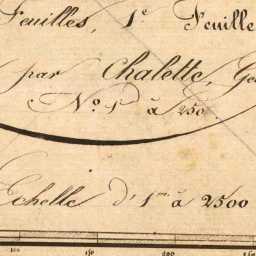 Feuilles, 1e Feuille
par Chalette, Gé
No 1 à 250.
Echelle d'1m à 2500
100 150 200 250